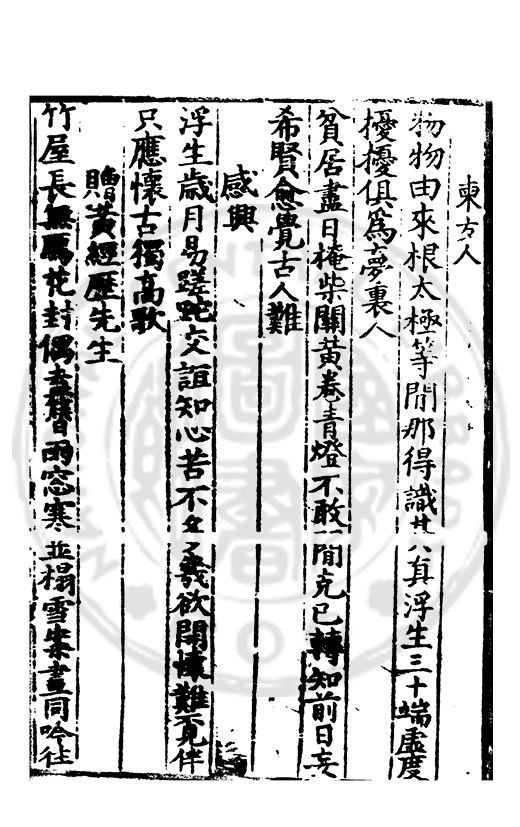 東方人
物物由來根太極等閒那得識其真浮生三十端虛度
擾擾俱爲夢裏人
貧居盡日掩柴關黃卷青燈不敢閒克已轉知前日妄
希賢愈覺古人難
感興
浮生歲月易蹉跎交誼知心苦不多幾欲開懷難覓伴
只應懷古獨高歌
贈黃經歷先生
竹屋長無鴈花封偶去暑雨窓寒並榻雪案晝同吟往